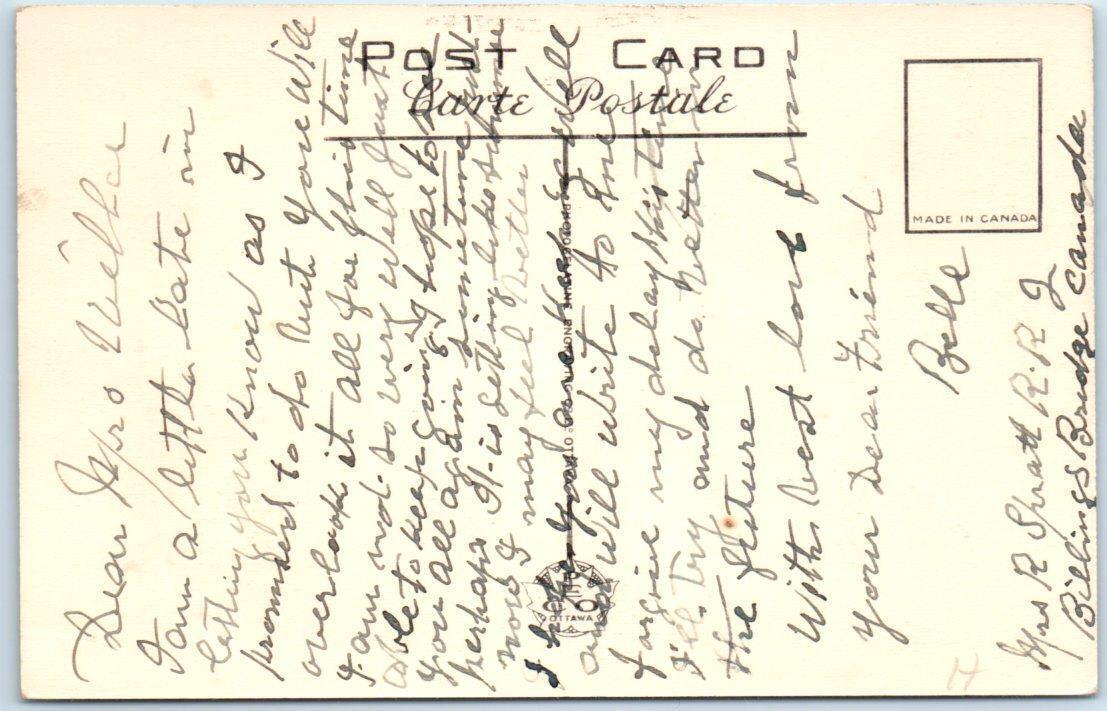 POST CARD
Carte Postale
MADE IN CANADA
PHOTOGELATINE ENGRAVING CO. OTTAWA
OTTAWA
Dear Mrs
I am a little late in
letting you know as I
promised to do But you Will
overlook it all for this time
I am not so very well Just
able to keep going I hope to see
you all again sometime
perhaps It is getting like
now I may feel better
I hope you are keeping well
and Will write to me
forgive my delay this time
I'll try and do better in
the future
With Best love from
your Dear Friend
Belle
Mrs R Spratt R.R
Billings Bridge Canada